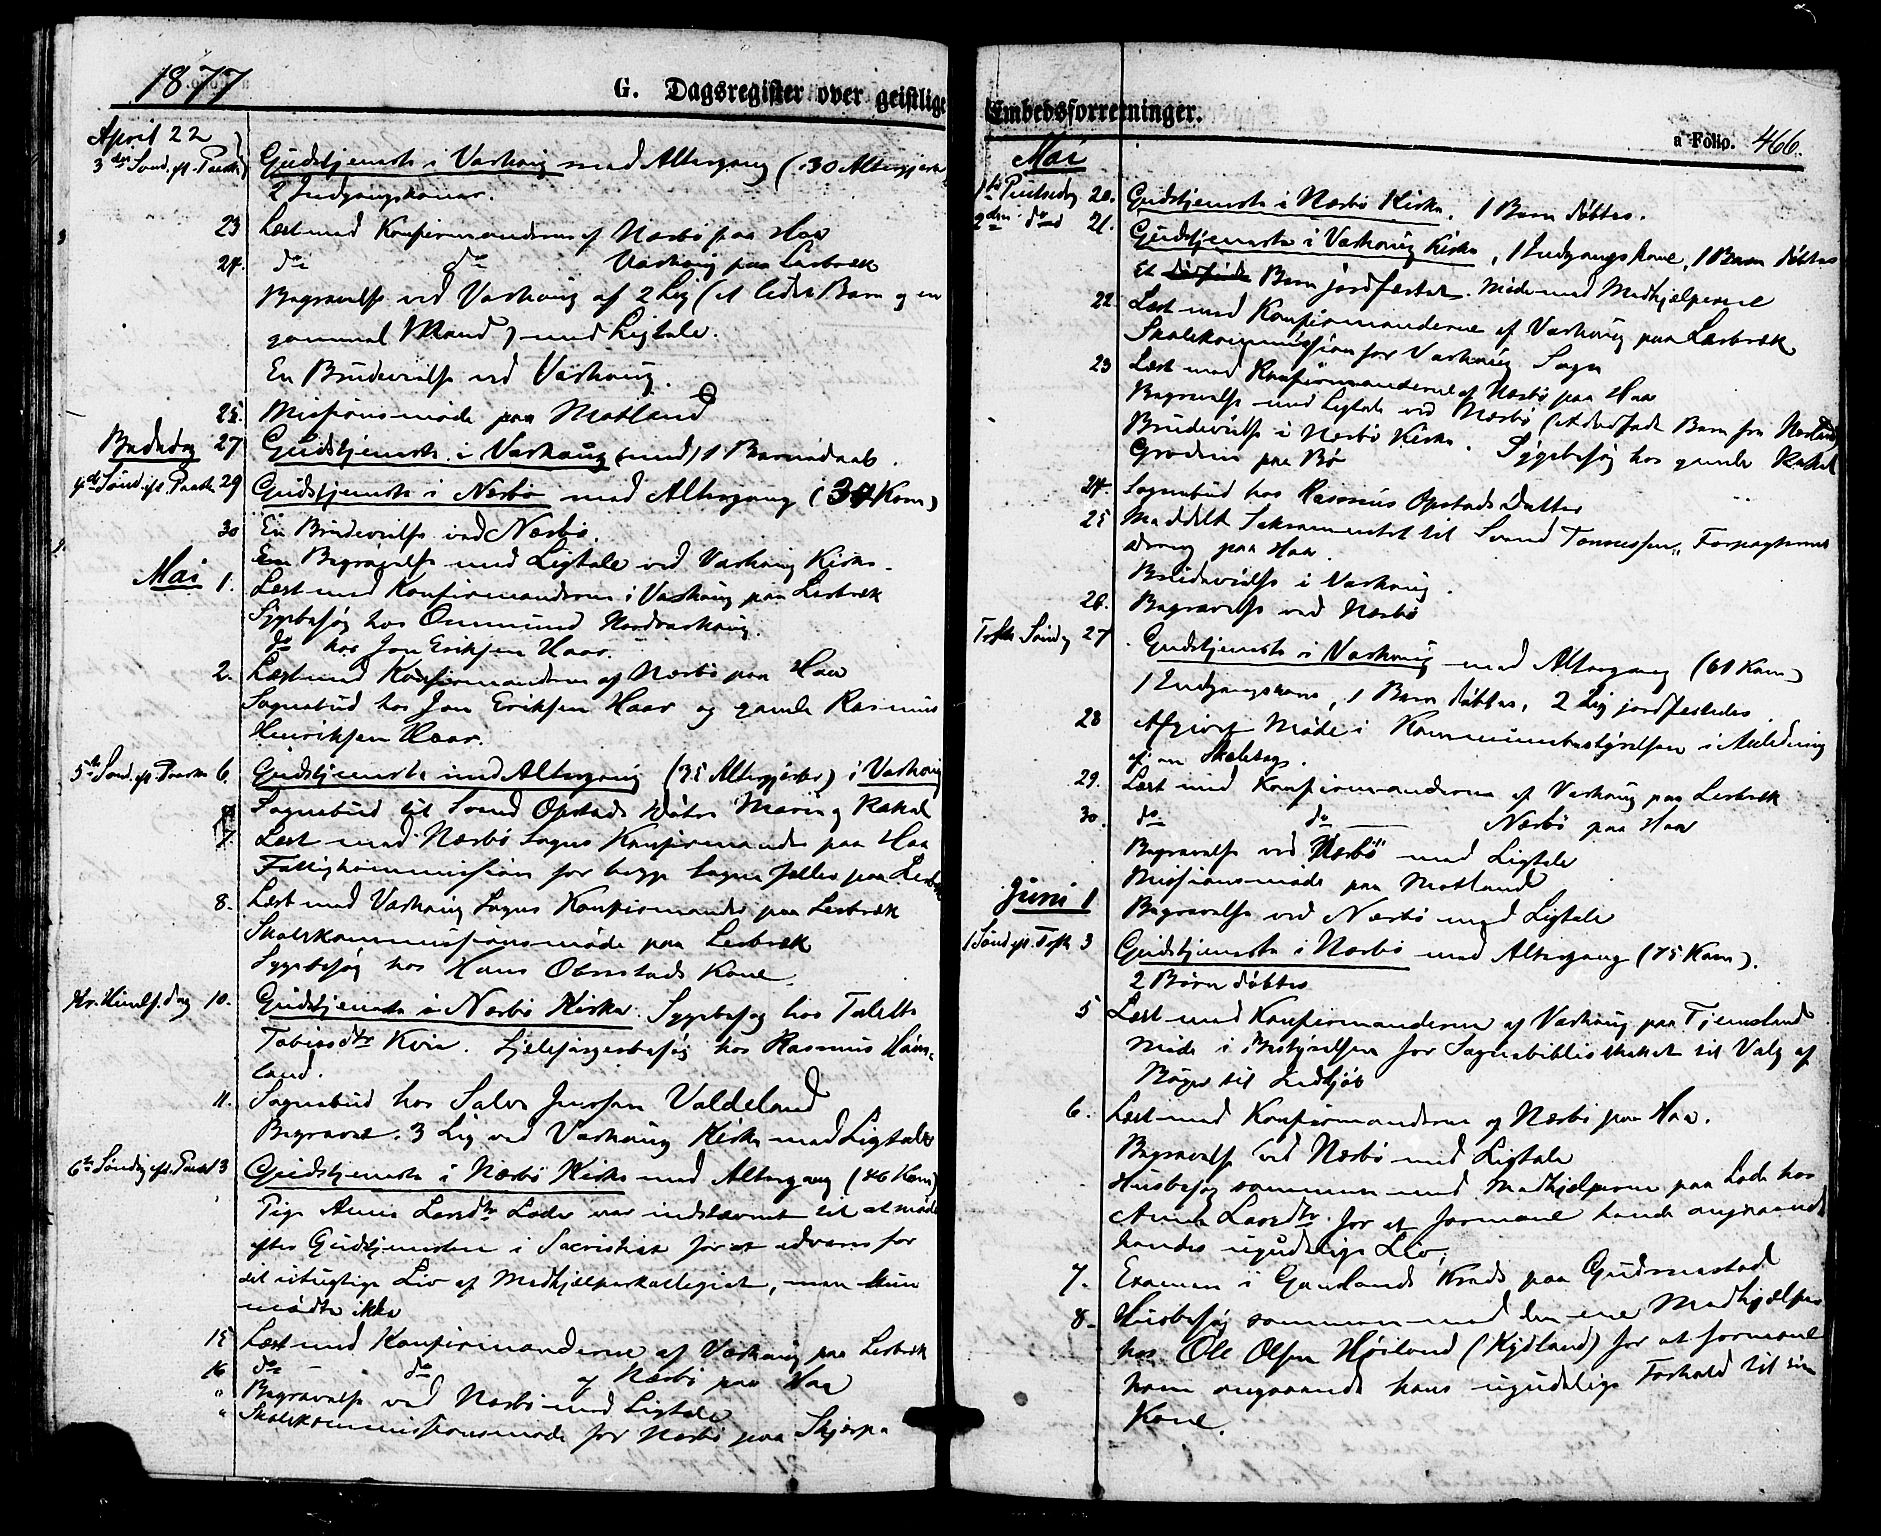 1877
G. Dagsregister over geistlige
April 22
3die Sönd. eft. Paaske Gudstjeneste i Varhaug med Altergang (30 Altergjester
2 Indgangskoner.
23 Læst med Konfirmanderne af Nærbö paa Haa
24. do do Varhaug paa Lerbræk
Begravelse ved Varhaug af 2 Lig (et lidet Barn og en
gammel Mand) med Ligtale.
En Brudevielse ved Varhaug.
25. Missionsmöde paa Motland
Bededag 27 Gudstjeneste i Varhaug (med) 1 Barnedaab.
4de Sönd. eft. Paaske 29 Gudstjeneste i Nærbö med Altergang (34 Kom)
30 En Brudevielse ved Nærbö.
En Begravelse med Ligtale ved Varhaug Kirke.
Mai 1. Læst med Konfirmanderne i Varhaug paa Lerbræk
Sygebesög hos Ommund Nordvarhaug.
do hos Jon Eriksen Haar.
2. Læst med Konfirmanderne af Nærbö paa Haa
Sognebud hos Jon Eriksen Haar og gamle Rasmus
Henriksen Haar.
5te Sönd. eft. Paaske 6. Gudstjeneste med Altergang (35 Altergjester) i Varhaug
Sognebud til Svend Opstads Döttre Marie og Rakel
7. Læst med Nærbö Sogns Konfirmander paa Haa
Fattigkommission for begge Sogne fælles paa Lerbræk
8. Læst med Varhaug Sogns Konfirmander paa Lerbræk
Skolekommissionsmöde paa Lerbræk
Sygebesög hos Hans Obrestads Kone.
Kr. Himlf. dag 10. Gudstjeneste i Nærbö Kirke. Sygebesög hos Taletta
Tobiasdtr Kvia. Sjelesörgerbesög hos Rasmus
land.
11. Sognebud hos Salve Valdeland
Begravet 3 Lig ved Varhaug Kirke med Ligtale
6te Söndag eft. Paaske 13 Gudstjeneste i Nærbö Kirke med Altergang (46 Kom)
Pige Anne Larsdtr Lode var indstævnet til at möde
efter Gudstjenesten i Sacristiet for at advares for
sit utugtige Liv af Medhjælperkollegiet, men hun
mödte ikke
15 Læst med Konfirmanderne af Varhaug paa Lerbræk
16 do do af Nærbö paa Haa
" Begravelse ved Nærbö med Ligtale
" Skolekommissionsmöde for Nærbö paa Skjærpe
Embedsforretninger.
a Folio. 466.
Mai
1ste Pintsedag 20. Gudstjeneste i Nærbö Kirke. 1 Barn döbtes.
2den do 21. Gudstjeneste i Varhaug Kirke, 1 Indgangskone, 1 Barn döbtes
Et dödfödt Barn jordfæstet. Möde med Medhjælperne
22. Læst med Konfirmanderne af Varhaug paa Lerbræk
Skolekommission for Varhaug Sogn
23 Læst med Konfirmanderne af Nærbö paa Haa
Begravelse med Ligtale ved Nærbö (et dödfödt Barn fra Nærland)
Brudevielse i Nærbö Kirke. Sygebesög hos gamle Rakel
Grödem paa Bö
24. Sognebud hos Rasmus Opstads Datter
25 Meddelt Sakramentet til Svend Tönnessen, Forpagterens
paa Haa.
Brudevielse i Varhaug.
26. Begravelse ved Nærbö
Trefk. Söndag 27. Gudstjeneste i Varhaug med Altergang (61 Kom)
1 Indgangskone, 1 Barn döbtes, 2 Lig jordfæstedes
28 Afgivet Möde i Kommunebestyrelsen i Anledning
af en Skolesag.
29. Læst med Konfirmanderne af Varhaug paa Lerbræk
30. do do Nærbö paa Haa
Begravelse ved Nærbö med Ligtale
Missionsmöde paa Motland
Juni 1 Begravelse ved Nærbö med Ligtale
1 Sönd. eft. Trefk 3 Gudstjeneste i Nærbö med Altergang (75 Kom).
2 Börn döbtes
5 Læst med Konfirmanderne af Varhaug paa Tjemsland
Möde i Bestyrelsen for Sognebibliotheket til Valg af
Böger til Indkjöb
6. Læst med Konfirmanderne af Nærbö paa Haa.
Begravelse ved Nærbö med Ligtale
Husbesög sammen med Medhjælperne paa Lode hos
Anne Larsdtr for at formane hende angaaende
hendes ugudelige Liv.
7. Examen i Grødlands Kreds paa Gudmestad
8. Husbesög sammen med den ene Medhjælper
hos Ole Olsen Höiland (Kydland) for at formane
ham angaaende hans ugudelige Forhold til sin
Kone.